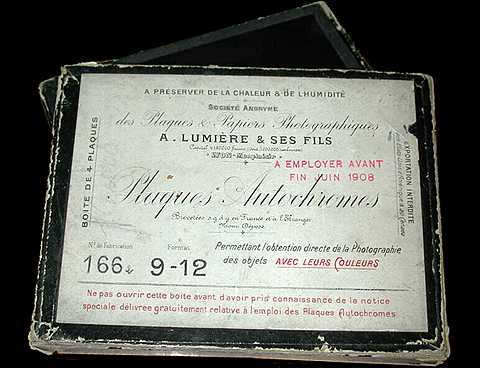 A PRÉSERVER DE LA CHALEUR & DE L'HUMIDITÉ
SOCIÉTÉ ANONYME
des Plaques & Papiers Photographiques
A. LUMIÈRE & SES FILS
A EMPLOYER AVANT
FIN JUIN 1908
Plaques Autochromes
Brevetées s.g.d.g. en France et à l'Etranger
Nom Déposé
BOITE DE 4 PLAQUES
EXPORTATION INTERDITE
No de Fabrication
Format
166
9-12
Permettant l'obtention directe de la Photographie
des objets AVEC LEURS COULEURS
Ne pas ouvrir cette boite avant d'avoir pris connaissance de la notice
speciale délivrée gratuitement relative à l'emploi des Plaques Autochromes